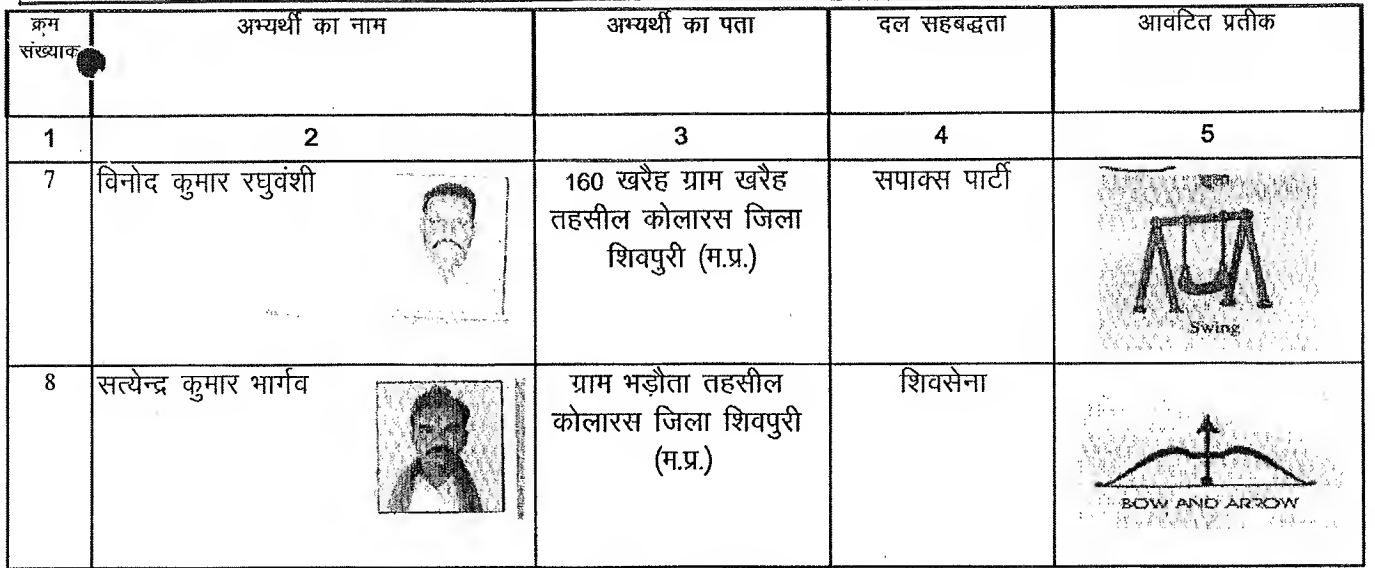 क्रम संख्याक अभ्यर्थी का नाम अभ्यर्थी का पता दल सहबद्धता आवंटित प्रतीक
1 2 3 4 5
7 विनोद कुमार रघुवंशी 160 खरैह ग्राम खरैह सपाक्स पार्टी
तहसील कोलारस जिला
शिवपुरी (म.प्र.)
Swing
8 सत्येन्द्र कुमार भार्गव ग्राम भड़ौता तहसील शिवसेना
कोलारस जिला शिवपुरी
(म.प्र.)
BOW AND ARROW